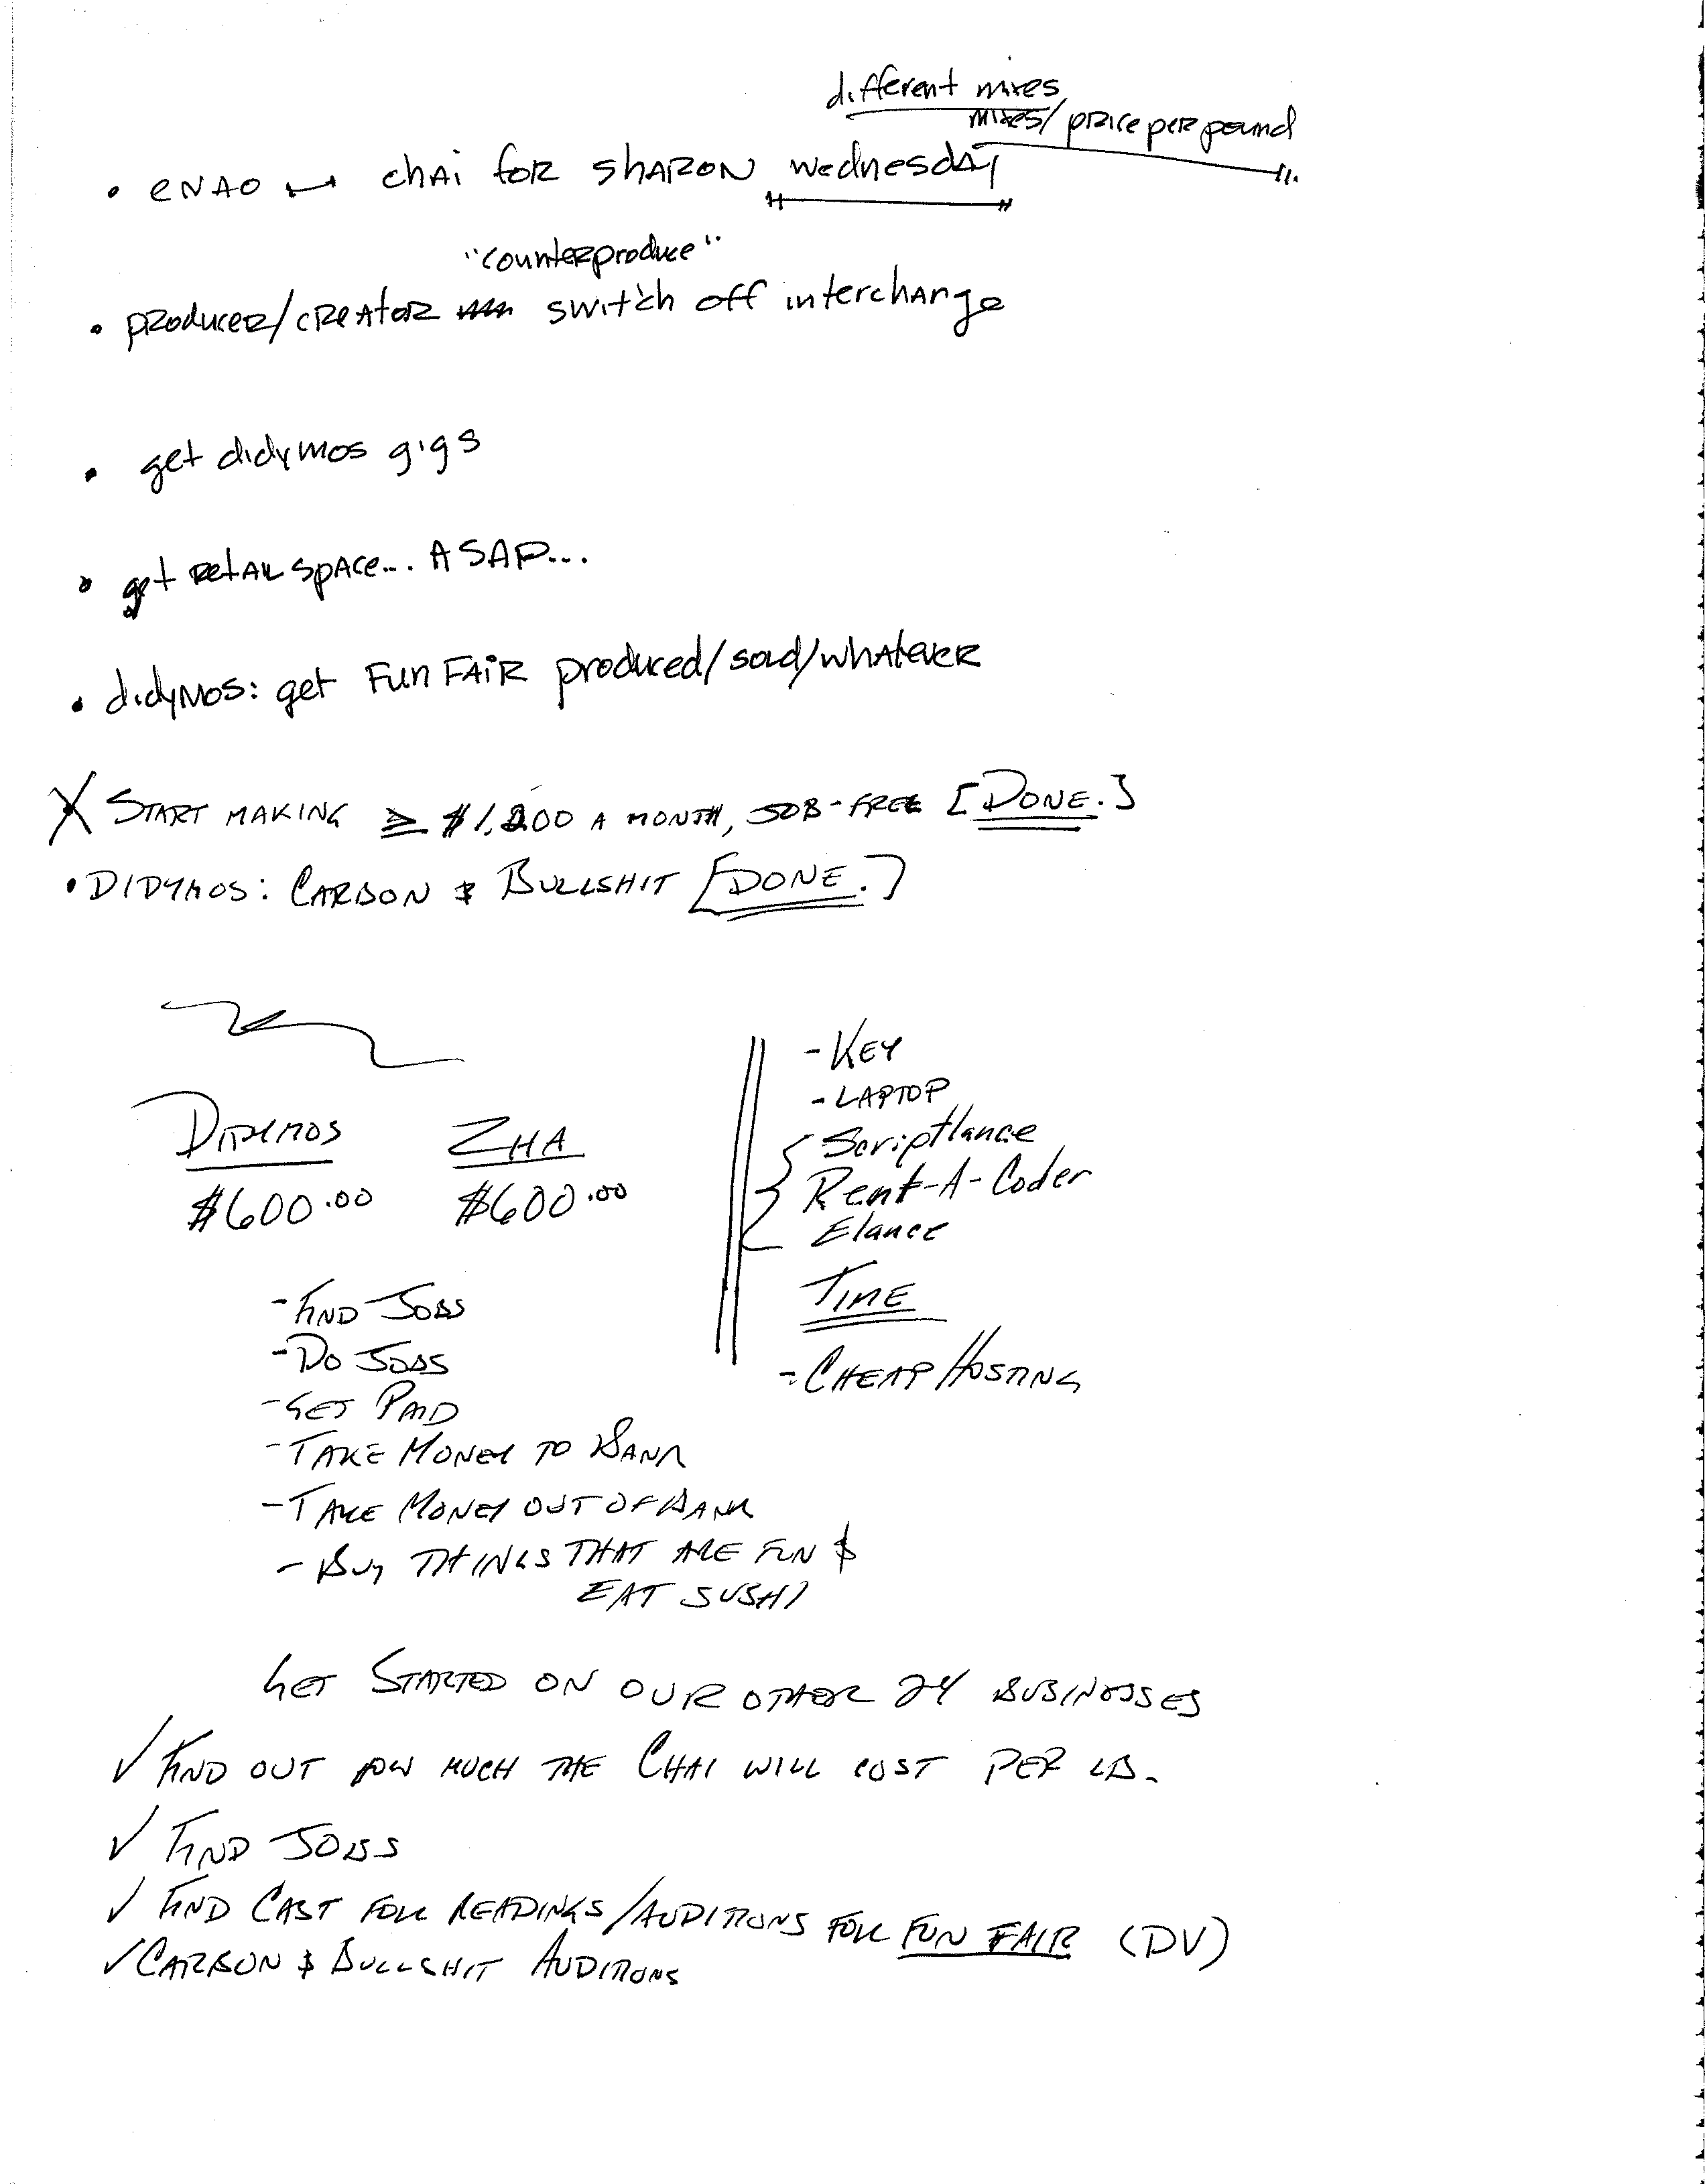 different mixes
mixes/price per pound
• eNAO ↔ chai for sharon wednesday
"counterproduce"
• producer/creator switch off interchange
• get didymos gigs
• get retail space... ASAP...
• didymos: get Fun Fair produced/sold/whatever
X START MAKING ≥ $1,200 A MONTH, JOB-FREE [DONE.]
• DIDYMOS: CARBON & BULLSHIT [DONE.]
DIDYMOS ZHA
$600.00 $600.00
- FIND JOBS
- DO JOBS
- GET PAID
- TAKE MONEY TO BANK
- TAKE MONEY OUT OF BANK
- BUY THINGS THAT ARE FUN &
EAT SUSHI
- KEY
- LAPTOP
Scriptlance
Rent-A-Coder
Elance
TIME
- CHEAP HOSTING
GET STARTED ON OUR OTHER 24 BUSINESSES
✓ FIND OUT HOW MUCH THE CHAI WILL COST PER LB.
✓ FIND JOBS
✓ FIND CAST FOR READINGS/AUDITIONS FOR FUN FAIR (DV)
✓ CARBON & BULLSHIT AUDITIONS